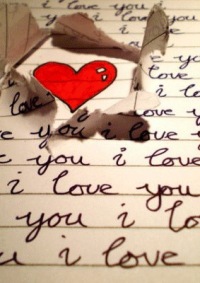 i love you i
i love you
you
love
i lo
love
love you
e you i love
e you i love
i love you
you i lo
u i love